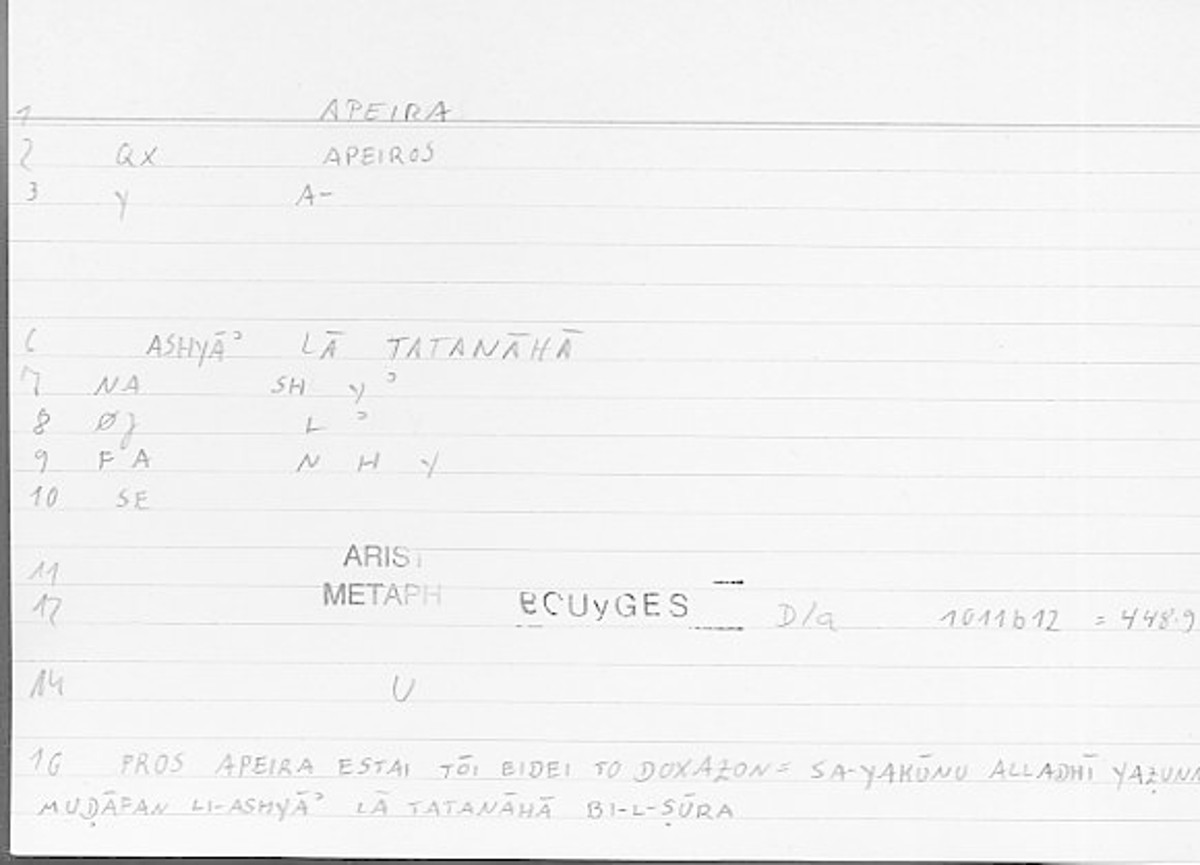 1 APEIRA
2 QX APEIROS
3 Y A-
6 ASHYĀʾ LĀ TATANĀHĀ
7 NA SH Y ʾ
8 L ʾ
9 F A N H Y
10 SE
11 ARIST
12 METAPH D/a 1011b12 = 448.9
14 U
16 PROS APEIRA ESTAI TŌI EIDEI TO DOXAZON = SA-YAKŪNU ALLADHĪ YAẒUNN
MUḌĀFAN LI-ASHYĀʾ LĀ TATANĀHĀ BI-L-ṢŪRA